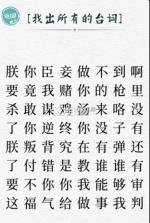 [找出所有的台词]
朕你臣妾做不到啊
要竟我赌你的枪里
杀敢谋鸡汤来咯没
了你逆终你没子有
朕叛背究在有弹还
了付错是教谁谁有
要不你你我能够审
这福气给做事我判